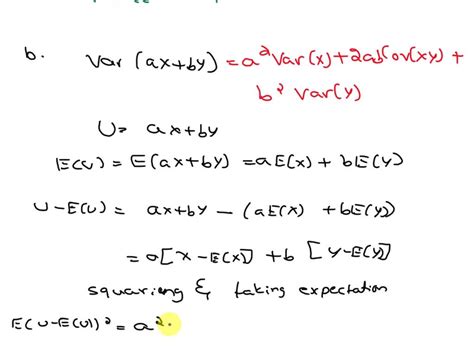 b. Var (ax+by) = a²Var(x)+2ab Cov(xy) +
b² Var(y)
U= ax+by
E(U) = E(ax+by) = aE(x) + bE(y)
U-E(U) = ax+by - (aE(x) +bE(y))
= a[x-E(x)] + b [y-E(y)]
squarieng & taking expectation
E(U-E(U))² = a².